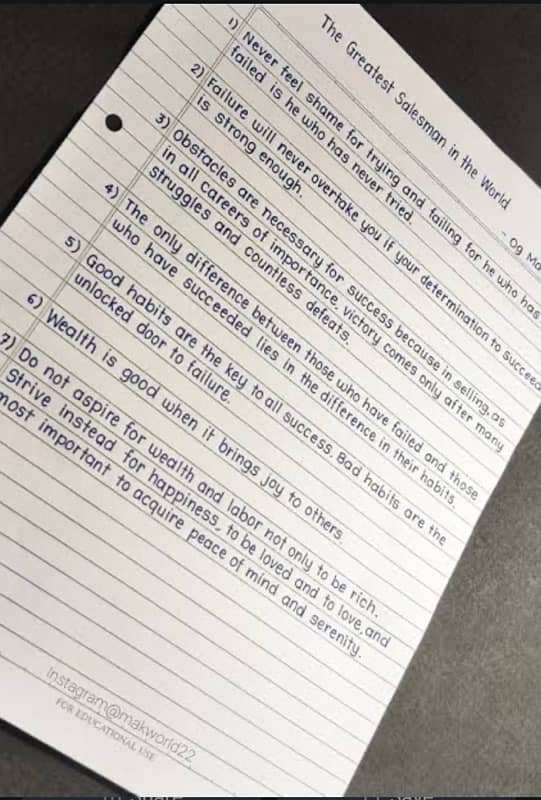 The Greatest Salesman in the World
- Og
1) Never feel shame for trying and failing for he who has
failed is he who has never tried.
2) Failure will never overtake you if your determination to succeed
is strong enough.
3) Obstacles are necessary for success because in selling, as
in all careers of importance, victory comes only after many
struggles and countless defeats.
4) The only difference between those who have failed and those
who have succeeded lies in the difference in their habits.
5) Good habits are the key to all success. Bad habits are the
unlocked door to failure.
6) Wealth is good when it brings joy to others.
7) Do not aspire for wealth and labor not only to be rich.
Strive instead for happiness, to be loved and to love, and
most important to acquire peace of mind and serenity.
Instagram@makworld22
FOR EDUCATIONAL USE